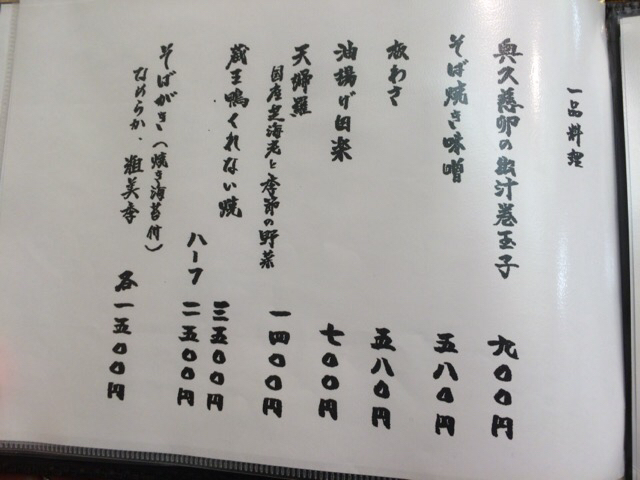 一品料理
奥久慈卵の出汁巻玉子 九〇〇円
そば焼き味噌 五八〇円
板わさ 五八〇円
油揚げ田楽 七〇〇円
天婦羅 一四〇〇円
国産芝海老と季節の野菜
蔵王鴨くれない焼 三五〇〇円
ハーフ 二五〇〇円
そばがき(焼き海苔付) 各一五〇〇円
なめらか、雅美李